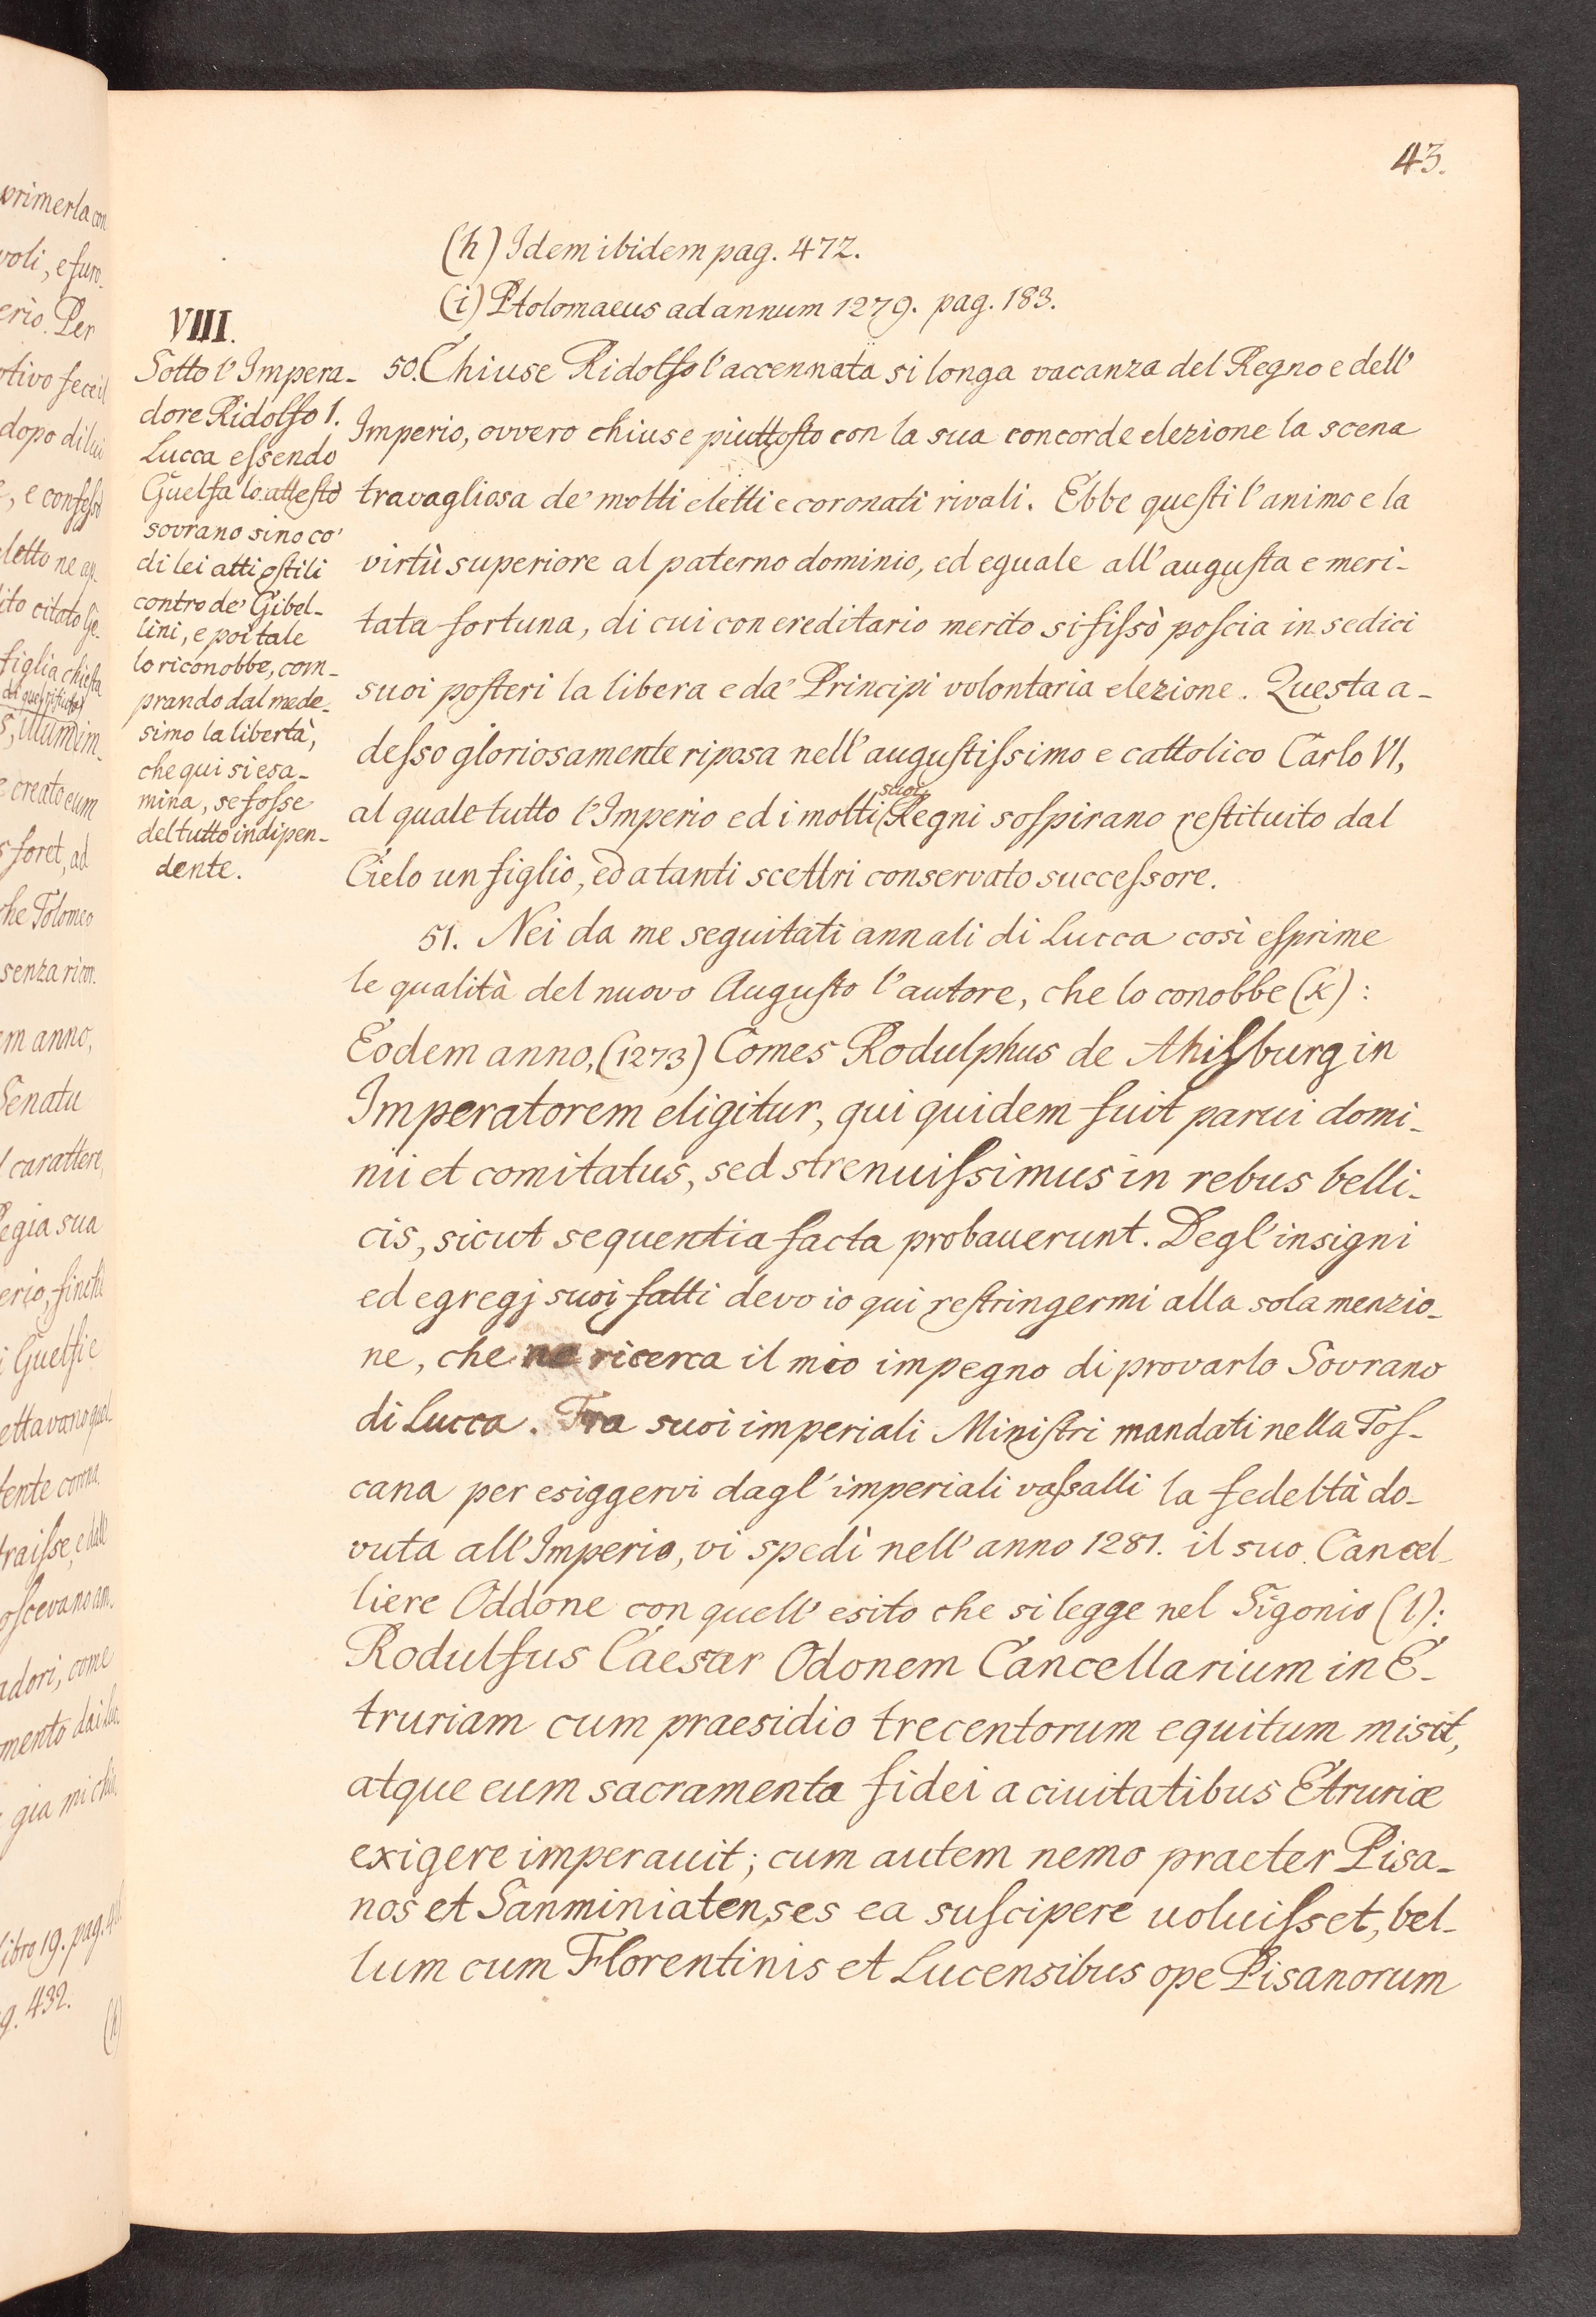 43.
(h) Idem ibidem pag. 472.
(i) Ptolomaeus ad annum 1279. pag. 183.
VIII.
Sotto l'Impera-
dore Ridolfo I.
Lucca essendo
Guelfa lo attestò
sovrano sino co'
di lei atti ostili
contro de' Gibel-
lini, e poi tale
lo riconobbe, com-
prando dal mede-
simo la libertà,
che qui si esa-
mina, se fosse
del tutto indipen-
dente.
50. Chiuse Ridolfo l'accennata si longa vacanza del Regno e dell'
Imperio, ovvero chiuse piuttosto con la sua concorde elezione la scena
travagliosa de' molti eletti e coronati rivali. Ebbe questi l'animo e la
virtù superiore al paterno dominio, ed eguale all'augusta e meri-
tata fortuna, di cui con ereditario merito si fissò poscia in sedici
suoi posteri la libera e da' Principi volontaria elezione. Questa a-
desso gloriosamente riposa nell'augustissimo e cattolico Carlo VI,
al quale tutto l'Imperio ed i molti suoi Regni sospirano restituito dal
Cielo un figlio, ed a tanti scettri conservato successore.
51. Nei da me seguitati annali di Lucca così esprime
le qualità del nuovo Augusto l'autore, che lo conobbe (k):
Eodem anno, (1273) Comes Rodulphus de Ahisburg in
Imperatorem eligitur, qui quidem fuit parui domi-
nii et comitatus, sed strenuissimus in rebus belli-
cis, sicut sequentia facta probauerunt. Degl'insigni
ed egregj suoi fatti devo io qui restringermi alla sola menzio-
ne, che ne ricerca il mio impegno di provarlo Sovrano
di Lucca. Tra suoi imperiali Ministri mandati nella Tos-
cana per esiggervi dagl'imperiali vassalli la fedeltà do-
vuta all'Imperio, vi spedì nell'anno 1281. il suo Cancel-
liere Oddone con quell'esito che si legge nel Sigonio (l):
Rodulfus Caesar Odonem Cancellarium in E-
truriam cum praesidio trecentorum equitum misit,
atque eum sacramenta fidei a ciuitatibus Etruriæ
exigere imperauit; cum autem nemo praeter Pisa-
nos et Sanminiatenses ea suscipere uoluisset, bel-
lum cum Florentinis et Lucensibus ope Pisanorum